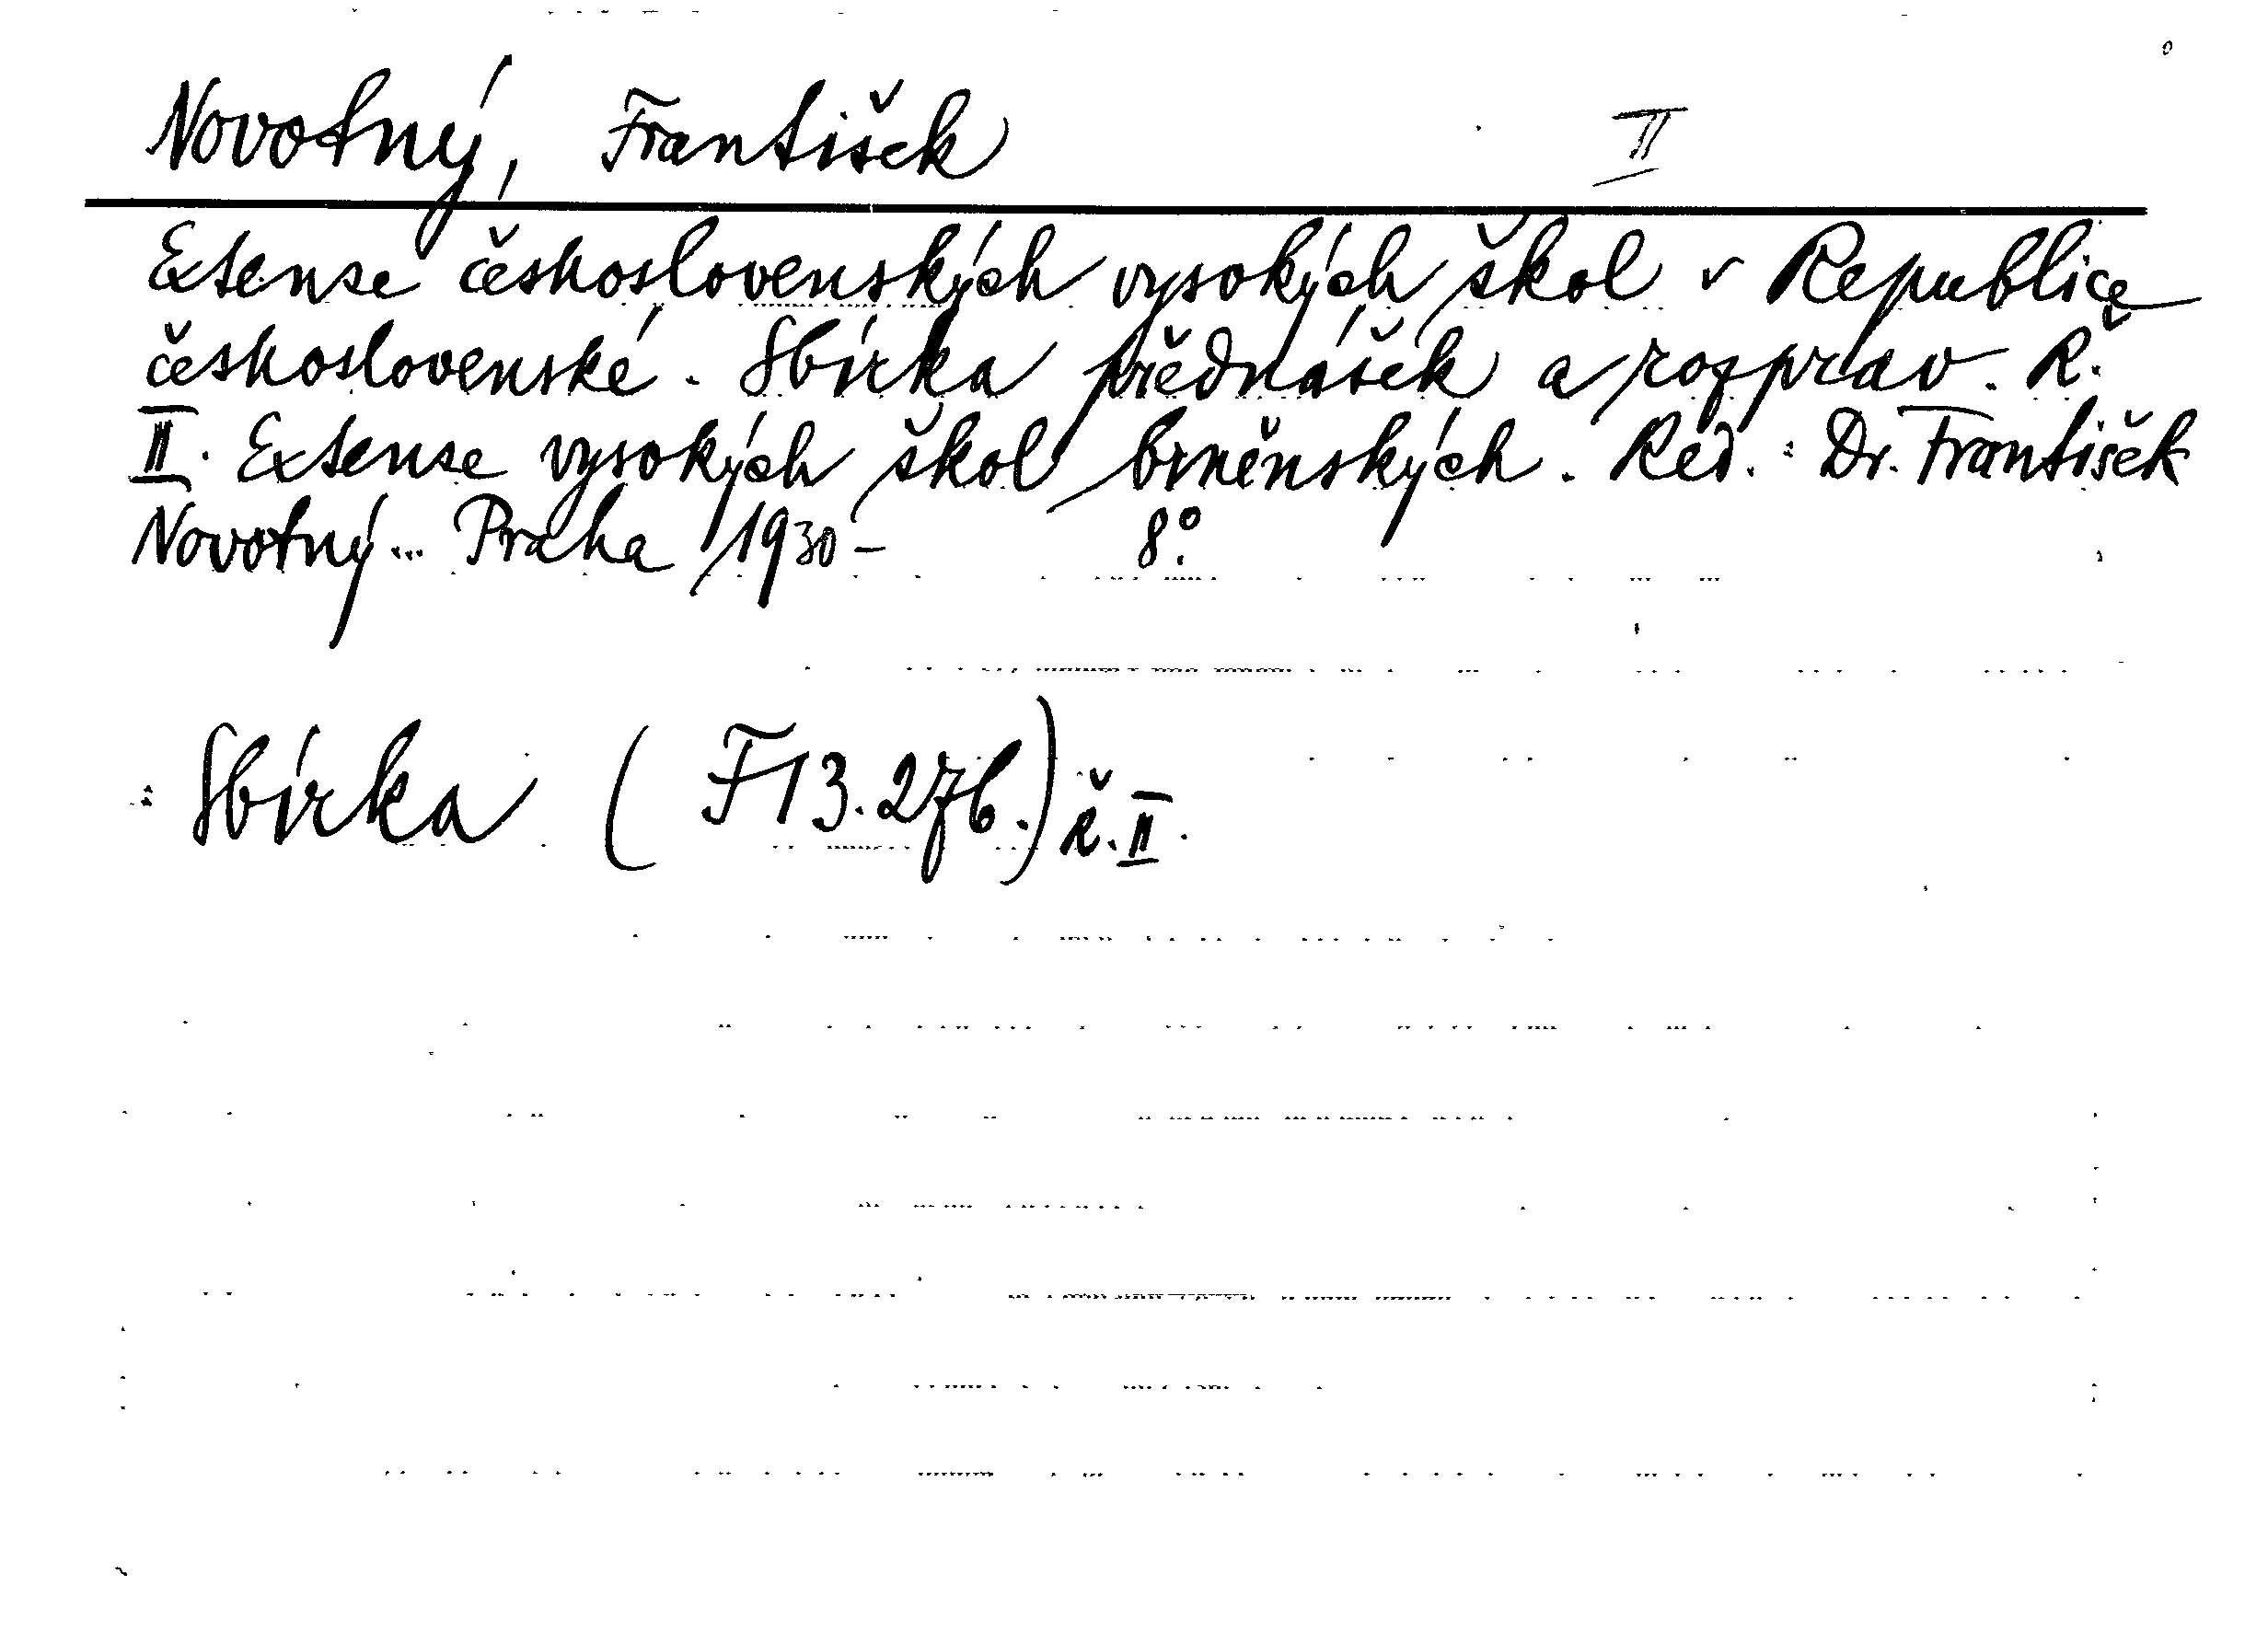 Novotný, František II
Extense československých vysokých škol v Republice
československé. Sbírka přednášek a rozprav. Ř.
II. Extense vysokých škol brněnských. Red.: Dr. František
Novotný... Praha 1930- 8°.
Sbírka (F13.276.) Ř. II.